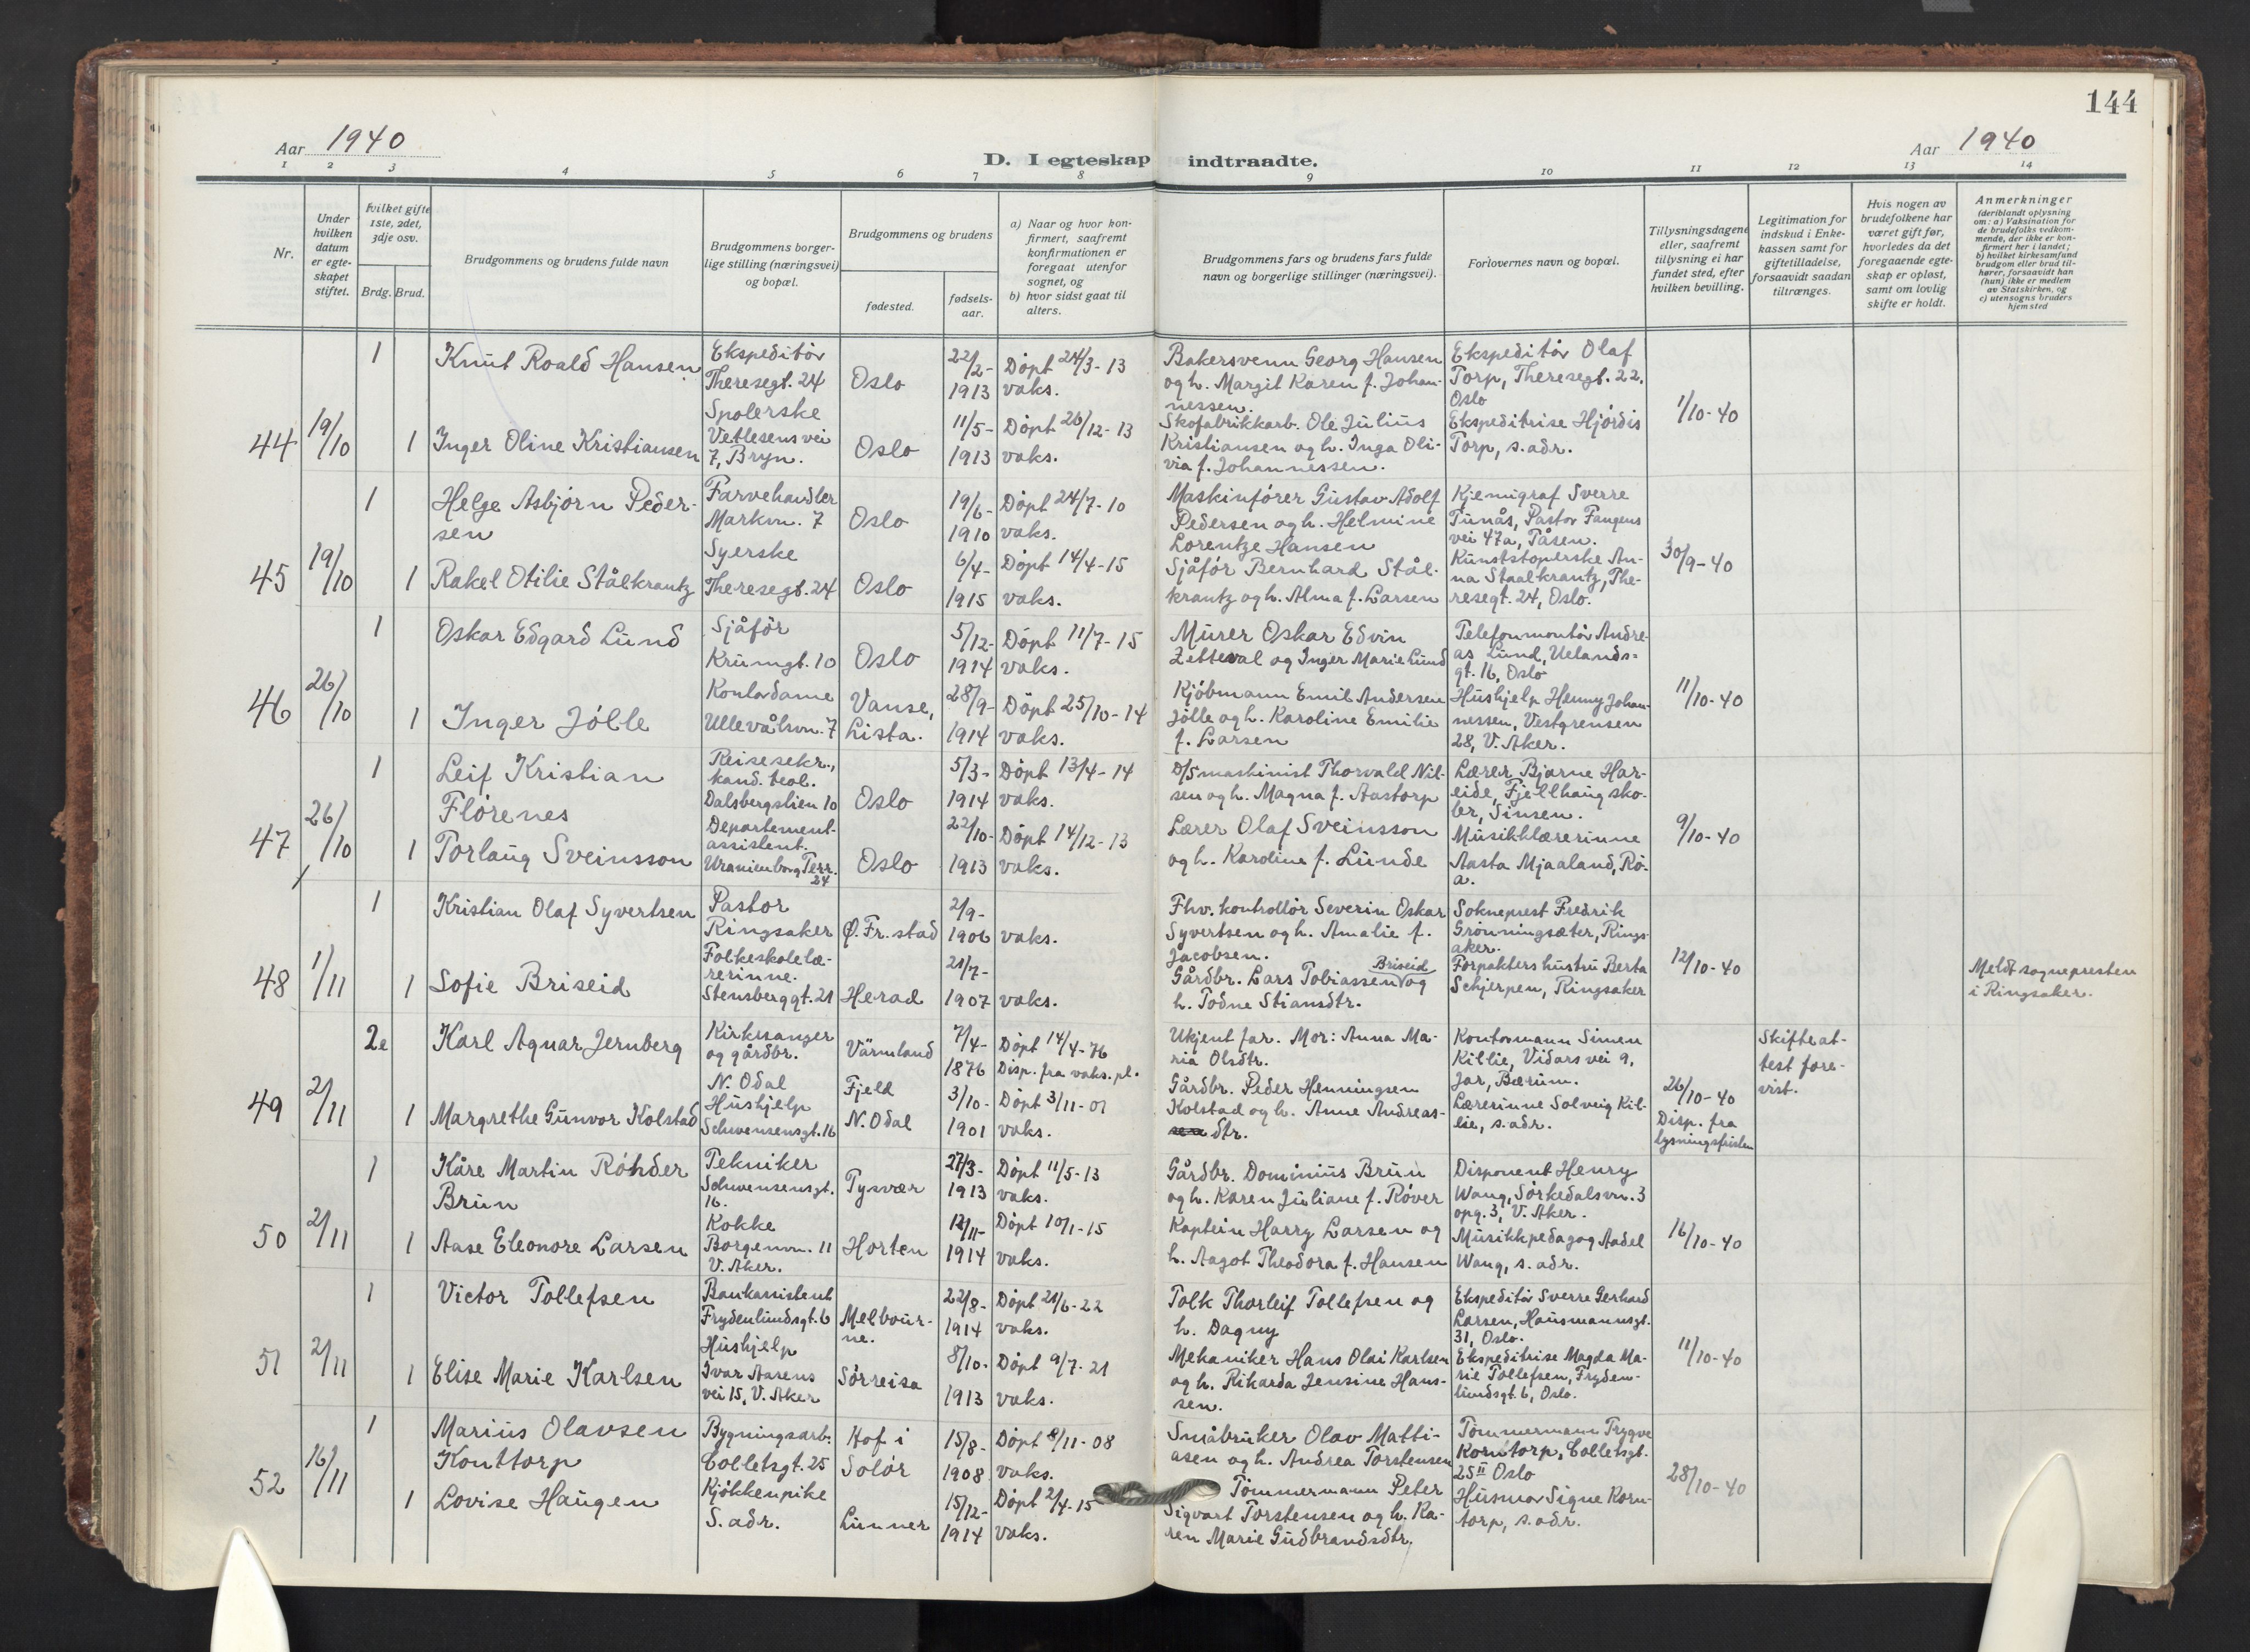 144
Aar 1940
D. I egteskap indtraadte.
Aar 1940
1 2 3 4 5 6 7 8 9 10 11 12 13 14
Nr.
Under
hvilken
datum
er egte-
skapet
stiftet.
hvilket gifte
1ste, 2det,
3dje osv.
Brdg. Brud.
Brudgommens og brudens fulde navn
Brudgommens borger-
lige stilling (næringsvei)
og bopæl.
Brudgommens og brudens
fødested.
fødsels-
aar.
a) Naar og hvor kon-
firmert, saafremt
konfirmationen er
foregaat utenfor
sognet, og
b) hvor sidst gaat til
alters.
Brudgommens fars og brudens fars fulde
navn og borgerlige stillinger (næringsvei).
Forlovernes navn og bopæl.
Tillysningsdagene
eller, saafremt
tillysning ei har
fundet sted, efter
hvilken bevilling.
Legitimation for
indskud i Enke-
kassen samt for
giftetilladelse,
forsaavidt saadan
tiltrænges.
Hvis nogen av
brudefolkene har
været gift før,
hvorledes da det
foregaaende egte-
skap er opløst,
samt om lovlig
skifte er holdt.
Anmerkninger
(deriblandt oplysning
om: a) Vaksination for
de brudefolks vedkom-
mende, der ikke er kon-
firmert her i landet;
b) hvilket kirkesamfund
brudgom eller brud til-
hører, forsaavidt han
(hun) ikke er medlem
av Statskirken, og
c) utensogns bruders
hjemsted
44
19/10
1
Knut Roald Hansen
Ekspeditör
Theresegt. 24
Oslo
22/2-
1913
Döpt 24/3-13
vaks.
Bakersvenn Georg Hansen
og h. Margit Karen f. Johan-
nessen.
Ekspeditör Olaf
Torp, Theresegt. 22,
Oslo
1/10-40
1
Inger Oline Kristiansen
Spolerske
Vetlesens vei
7, Bryn.
Oslo
11/5-
1913
Döpt 26/12-13
vaks.
Skofabrikkarb. Ole Julius
Kristiansen og h. Inga Oli-
via f. Johannessen.
Ekspeditrise Hjördis
Torp, s. adr.
45
19/10
1
Helge Asbjörn Peder-
sen
Farvehandler
Markvn. 7
Oslo
19/6-
1910
Döpt 24/7-10
vaks.
Maskinförer Gustav Adolf
Pedersen og h. Helmine
Lorentze Hansen
Kjemigraf Sverre
Tunås, Pastor Fangens
vei 47a, Tåsen.
30/9-40
1
Rakel Otilie Stålkrantz
Syerske
Theresegt. 24
Oslo
6/4-
1915
Döpt 14/4-15
vaks.
Sjåför Bernhard Stål-
krantz og h. Alma f. Larsen
Kunststoperske An-
na Staalkrantz, The-
resegt. 24, Oslo.
46
26/10
1
Oskar Edgard Lund
Sjåför
Krumgt. 10
Oslo
5/12-
1914
Döpt 11/7-15
vaks.
Murer Oskar Edvin
Zetteval og Inger Marie Lund
Telefonmontör Andre-
as Lund, Uelands-
gt. 16, Oslo
11/10-40
1
Inger Jölle
Kontordame
Ullevålsvn. 7
Vanse,
Lista.
28/9-
1914
Döpt 25/10-14
vaks.
Kjöbmann Emil Andersen
Jölle og h. Karoline Emilie
f. Larsen
Hushjelp Henny Johan-
nessen, Vestgrensen
28, V. Aker.
47
26/10
1
Leif Kristian
Flörenes
Reisesekr.,
kand. teol.
Dalsbergstien 10
Oslo
5/3-
1914
Döpt 13/4-14
vaks.
D/S maskinist Thorvald Nil-
sen og h. Magna f. Aastorp
Lærer Bjarne Har-
eide, Fjellhaug sko-
ler, Sinsen.
9/10-40
1
Torlaug Sveinsson
Departement-
assistent.
Uranienborg Terr.
24
Oslo
22/10-
1913
Döpt 14/12-13
vaks.
Lærer Olaf Sveinsson
og h. Karoline f. Lunde
Musikklærerinne
Aasta Mjaaland, Rö-
a.
48
1/11
1
Kristian Olaf Syvertsen
Pastor
Ringsaker
Ø. Fr. stad
2/9-
1906
vaks.
Fhv. kontrollör Severin Oskar
Syvertsen og h. Amalie f.
Jacobsen.
Sokneprest Fredrik
Grönningsæter, Rings-
aker.
12/10-40
Meldt sognepresten
i Ringsaker.
1
Sofie Briseid
Folkeskolelæ-
rerinne.
Stensberggt. 21
Herad
21/7-
1907
vaks.
Gårdbr. Lars Tobiassen Briseid og
h. Todne Stiansdtr.
Forpakters hustru Berta
Schjerpen, Ringsaker
49
2/11
2e
Karl Agnar Jernberg
Kirkesanger
og gårdbr.
N. Odal
Värmland
7/4-
1876
Döpt 14/4-76
Disp. fra vaks. pl.
Ukjent far. Mor: Anna Ma-
ria Olsdtr.
Kontormann Simen
Killie, Vidars vei 9,
Jar, Bærum.
26/10-40
Disp. fra
lysningsfristen
Skifteat-
test fore-
vist.
1
Margrethe Gunvor Kolstad
Hushjelp
Schwensensgt. 16
Fjeld
N. Odal
3/10-
1901
Döpt 3/11-01
vaks.
Gårdbr. Peder Henningsen
Kolstad og h. Anne Andreas-
dtr.
Lærerinne Solveig Kil-
lie, s. adr.
50
2/11
1
Kåre Martin Röhder
Brun
Tekniker
Schwensensgt.
16.
Tysvær
27/3-
1913
Döpt 11/5-13
vaks.
Gårdbr. Dominius Brun
og h. Karen Juliane f. Röver
Disponent Henry
Wang, Sörkedalsvn. 3
opg. 3, V. Aker.
16/10-40
1
Aase Eleonore Larsen
Kokke
Borgenvn. 11
V. Aker.
Horten
12/11-
1914
Döpt 10/1-15
vaks.
Kaptein Harry Larsen og
h. Aagot Theodora f. Hansen
Musikkpedagog Aadel
Wang, s. adr.
51
2/11
1
Victor Tollefsen
Bankassistent
Frydenlundsgt. 6
Melbour-
ne.
22/8-
1914
Döpt 21/6-22
vaks.
Tolk Thorleif Tollefsen og
h. Dagny
Ekspeditör Sverre Gerhard
Larsen, Hausmannsgt.
31, Oslo.
11/10-40
1
Elise Marie Karlsen
Hushjelp
Ivar Aasens
vei 15, V. Aker
Sörreisa
8/10-
1913
Döpt 9/7-21
vaks.
Mekaniker Hans Olai Karlsen
og h. Rikarda Jensine Hans-
sen.
Ekspeditrise Magda Ma-
rie Tollefsen, Fryden-
lundsgt. 6, Oslo.
52
16/11
1
Marius Olavsen
Konttorp
Bygningsarb.
Colletsgt. 25
Hof i
Solör
15/8-
1908
Döpt 8/11-08
vaks.
Småbruker Olav Matti-
asen og h. Andrea Torstensen
Tömmermann Trygve
Korntorp, Colletsgt.
25 II Oslo
28/10-40
1
Lovise Haugen
Kjökkenpike
S. adr.
Lunner
15/12-
1914
Döpt 2/4-15
vaks.
Tömmermann Peter
Sigvart Torstensen og h. Ka-
ren Marie Gudbrandsdtr.
Husmor Signe Korn-
torp, s. adr.